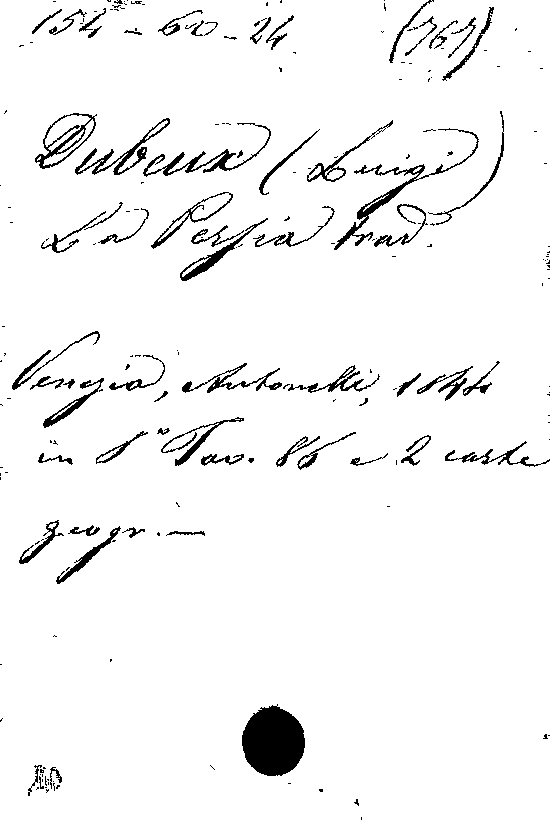 154 - 60 - 24 (767)
Dubeux (Luigi)
La Persia trad.
Venezia, Antonelli, 1844
in 8° Tav. 86 e 2 carte
geogr. —